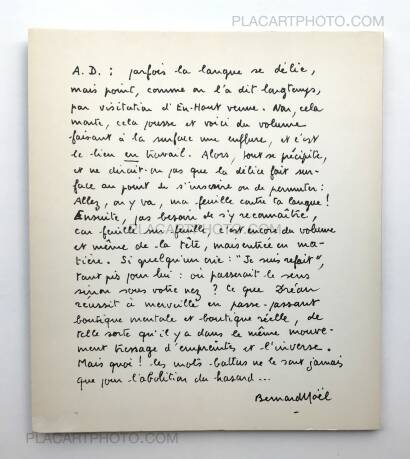 PLACARTPHOTO.COM
PLACARTPHOTO.COM
A.D. : parfois la langue se délie,
mais point, comme on l'a dit longtemps,
par visitation d'En-Haut venue. Non, cela
monte, cela pousse et voici du volume
faisant à la surface une enflure, et c'est
le lieu en travail. Alors, tout se précipite,
et ne dirait-on pas que la délice fait sur-
face au point de s'inscrire ou de permuter :
Allez, on y va, ma feuille contre ta langue !
Ensuite, pas besoin de s'y reconnaître,
car feuille sur feuille, c'est encore du volume
et même de la tête, mais entrée en ma-
tière. Si quelqu'un crie : "Je suis refait",
tant pis pour lui : où passerait le sens
sinon sous votre nez ? Ce que Dréan
réussit à merveille en passe-passant
boutique mentale et boutique réelle, de
telle sorte qu'il y a dans le même mouve-
ment tressage d'empreintes et l'inverse.
Mais quoi ! les mots battus ne le sont jamais
que pour l'abolition du hasard ...
Bernard Noël
PLACARTPHOTO.COM
PLACARTPHOTO.COM